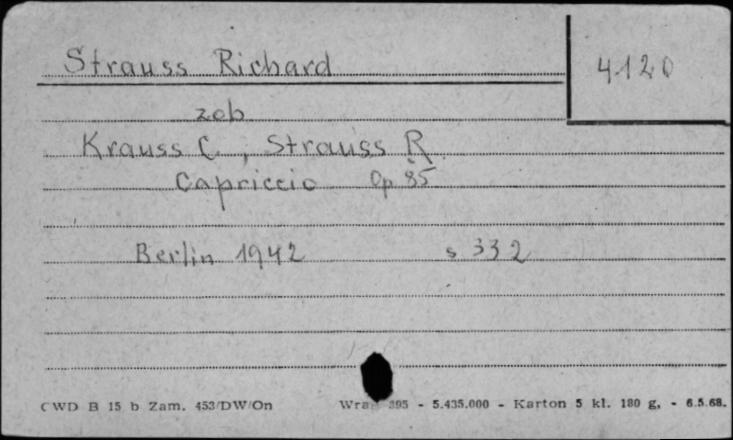 Strauss Richard
4120
zob
Krauss C., Strauss R
Capriccio Op 85
Berlin 1942 s 332
CWD B 15 b Zam. 453/DW/On 395 - 5.435.000 - Karton 5 kl. 180 g, - 6.5.68.